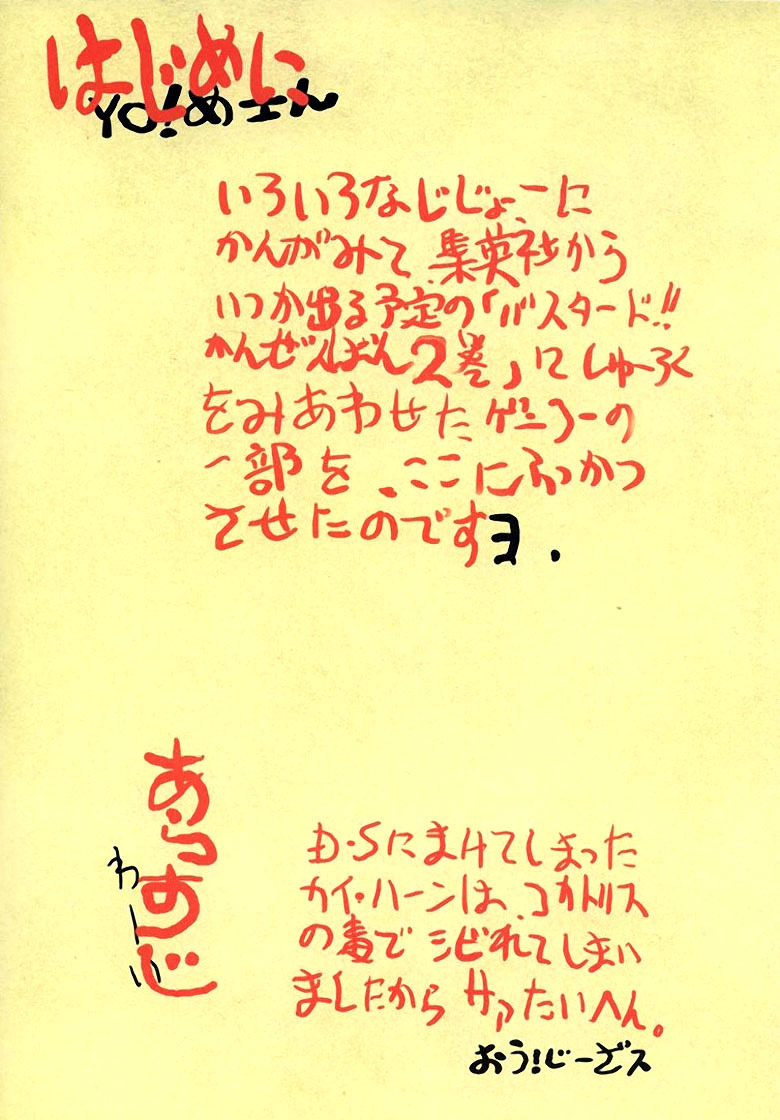 はじめに
YO!めさん
いろいろなじじょーに
かんがみて、集英社から
いつか出る予定の「バスタード!!
かんぜんばん2巻」にしゅーろく
をみあわせたゲンコーの
一部を、ここにふっかつ
させたのですヨ.
あらすじ
わーい
D・Sにまけてしまった
カイ・ハーンは、コカトリス
の毒でシビれてしまい
ましたから サアたいへん。
おう!じーざス